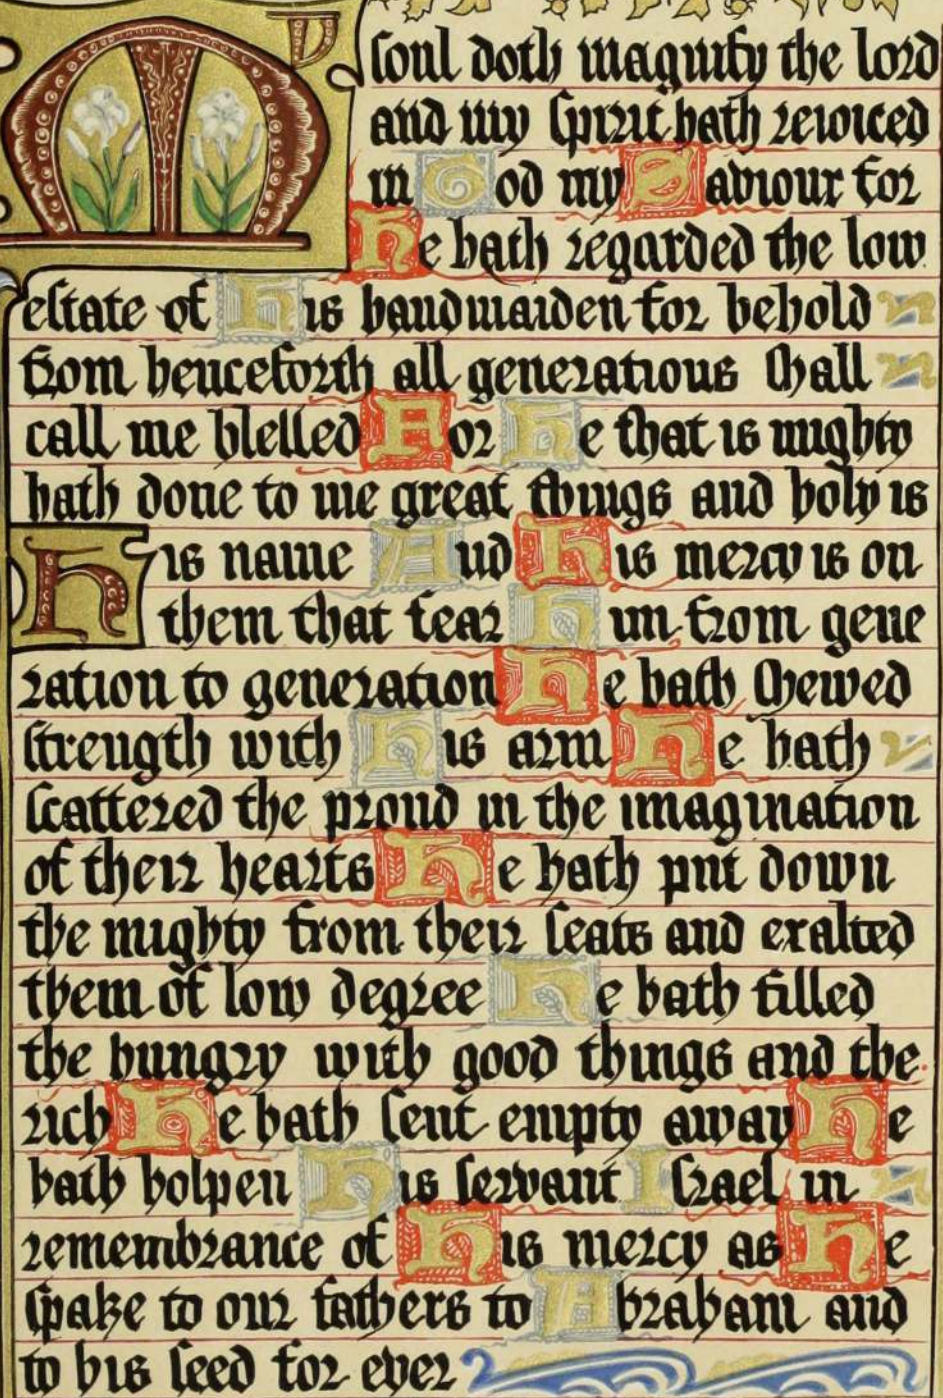 My
soul doth magnify the lord
and my spirit hath rejoiced
in God my Saviour for
He hath regarded the low
estate of His handmaiden for behold
from henceforth all generations shall
call me blessed For He that is mighty
hath done to me great things and holy is
His name And His mercy is on
them that fear Him from gene
ration to generation He hath shewed
strength with His arm He hath
scattered the proud in the imagination
of their hearts He hath put down
the mighty from their seats and exalted
them of low degree He hath filled
the hungry with good things and the
rich He hath sent empty away He
hath holpen His servant Israel in
remembrance of His mercy as He
spake to our fathers to Abraham and
to his seed for ever